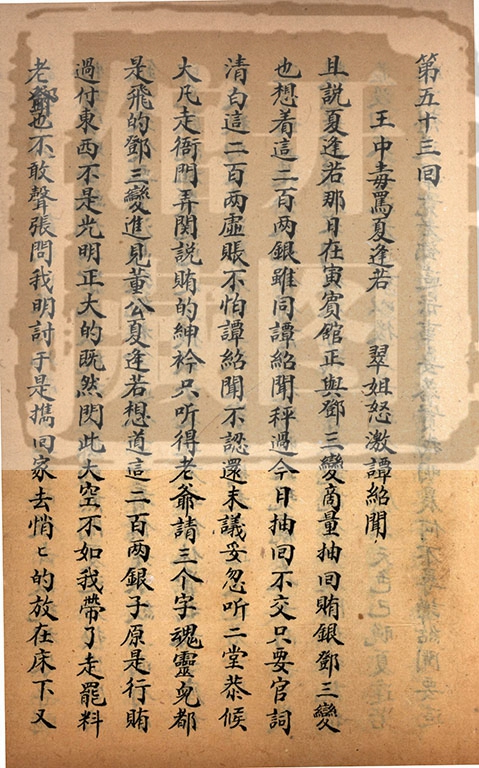 第五十三回
王中毒罵夏逢若　翠姐怒激譚紹聞
且説夏逢若那日在寅賓舘正與鄧三變商量抽回賄銀鄧三變
也想着這二百两銀雖同譚紹聞秤過今日抽回不交只要官詞
清白這二百两虛賬不怕譚紹聞不認還未議妥忽听二堂恭候
大凡走衙門弄関説賄的紳衿只听得老爺請三个字魂靈児都
是飛的鄧三變進見董公夏逢若想道這二百两銀子原是行賄
過付東西不是光明正大的既然閃此大空不如我帶了走罷料
老鄧也不敢聲張問我明討于是携回家去悄匕的放在床下又